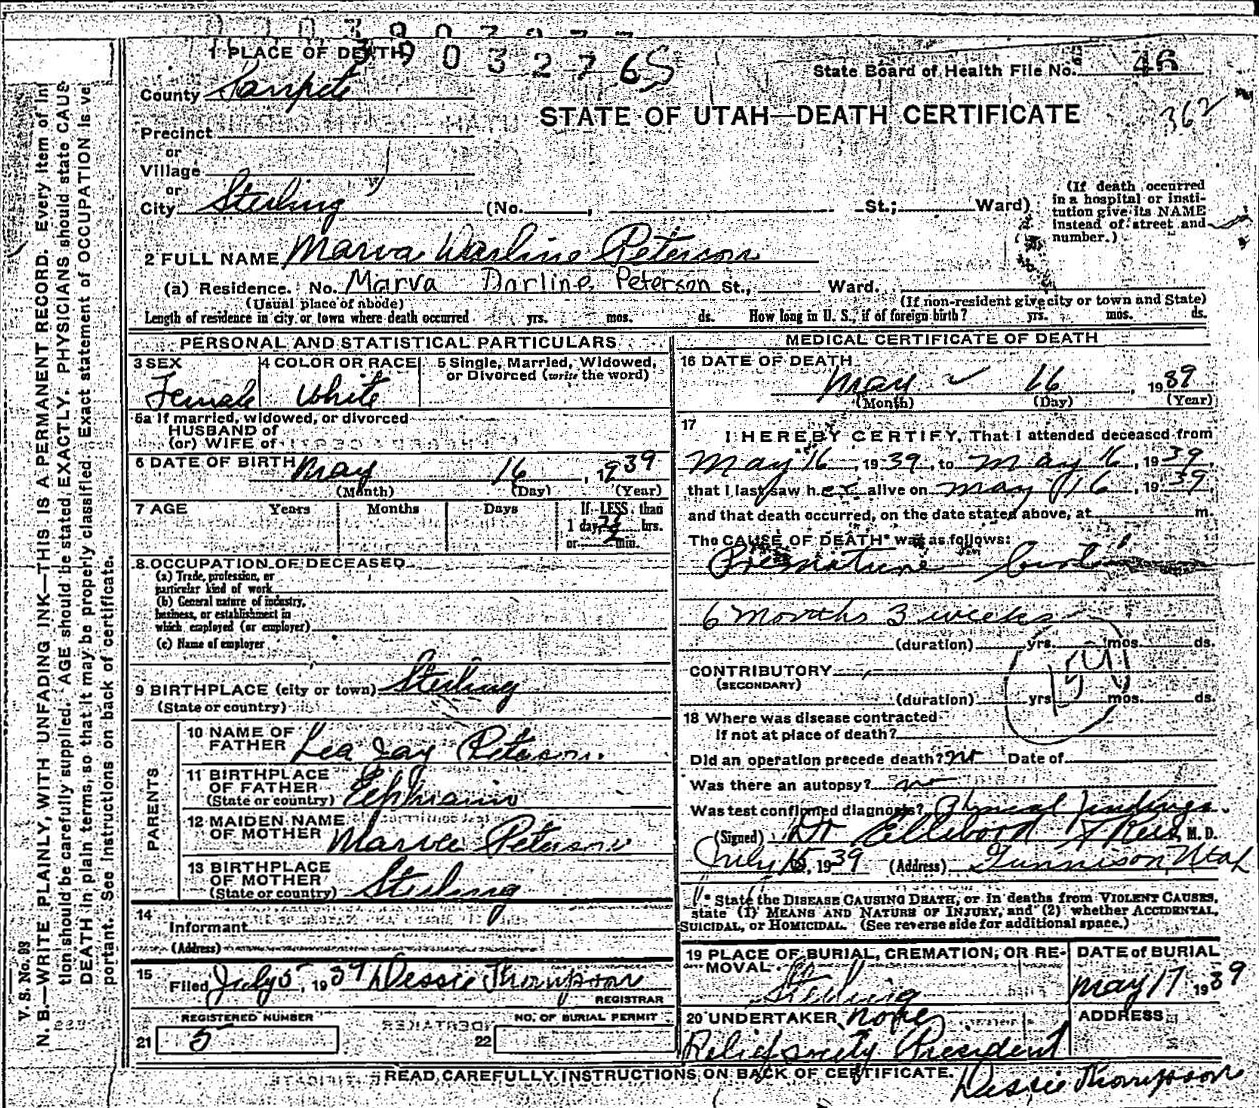 1 PLACE OF DEATH
903276S
State Board of Health File No. 46
County Sanpete
STATE OF UTAH—DEATH CERTIFICATE
362
Precinct
or
Village
or
City Sterling (No. , St.; Ward)
(If death occurred in a hospital or institution give its NAME instead of street and number.)
2 FULL NAME Marva Darline Peterson
(a) Residence. No. Marva Darline Peterson St., Ward.
(Usual place of abode) (If non-resident give city or town and State)
Length of residence in city or town where death occurred yrs. mos. ds. How long in U. S., if of foreign birth? yrs. mos. ds.
PERSONAL AND STATISTICAL PARTICULARS
3 SEX 4 COLOR OR RACE 5 Single, Married, Widowed, or Divorced (write the word)
Female White
6a If married, widowed, or divorced
HUSBAND of
(or) WIFE of
6 DATE OF BIRTH May 16, 1939
(Month) (Day) (Year)
7 AGE Years Months Days If LESS than
1 day, hrs.
or min.
8 OCCUPATION OF DECEASED
(a) Trade, profession, or
particular kind of work
(b) General nature of industry,
business, or establishment in
which employed (or employer)
(c) Name of employer
9 BIRTHPLACE (city or town) Sterling
(State or country)
PARENTS
10 NAME OF
FATHER Lea Jay Peterson.
11 BIRTHPLACE
OF FATHER Ephraim
(State or country)
12 MAIDEN NAME
OF MOTHER Marvee Peterson
13 BIRTHPLACE
OF MOTHER Sterling
(State or country)
14
Informant
(Address)
15
Filed July 5, 1939 Dessie Thompson
REGISTRAR
REGISTERED NUMBER NO. OF BURIAL PERMIT
21 5 22
MEDICAL CERTIFICATE OF DEATH
16 DATE OF DEATH
May 16, 1939
(Month) (Day) (Year)
17
I HEREBY CERTIFY, That I attended deceased from
May 16, 1939, to May 16, 1939
that I last saw her alive on May 16, 1939
and that death occurred, on the date stated above, at m.
The CAUSE OF DEATH* was as follows:
Premature birth
6 months 3 weeks
(duration) yrs. mos. ds.
CONTRIBUTORY
(SECONDARY)
(duration) yrs. mos. ds.
18 Where was disease contracted
If not at place of death?
Did an operation precede death? no Date of
Was there an autopsy? no
Was test confirmed diagnosis? findings.
(Signed) Dr M. D.
July 15, 1939 (Address) Gunnison, Utah
* State the DISEASE CAUSING DEATH, or in deaths from VIOLENT CAUSES,
state (1) MEANS AND NATURE OF INJURY, and (2) whether ACCIDENTAL,
SUICIDAL, or HOMICIDAL. (See reverse side for additional space.)
19 PLACE OF BURIAL, CREMATION, OR RE-
MOVAL
Sterling
DATE OF BURIAL
May 17 1939
20 UNDERTAKER none
ADDRESS
Relief society President
Dessie Thompson
READ CAREFULLY INSTRUCTIONS ON BACK OF CERTIFICATE.
V. S. No. 93
N. B.—WRITE PLAINLY, WITH UNFADING INK—THIS IS A PERMANENT RECORD. Every item of in
tion should be carefully supplied. AGE should be stated EXACTLY. PHYSICIANS should state CAUS
DEATH in plain terms, so that it may be properly classified. Exact statement of OCCUPATION is ve
portant. See Instructions on back of certificate.